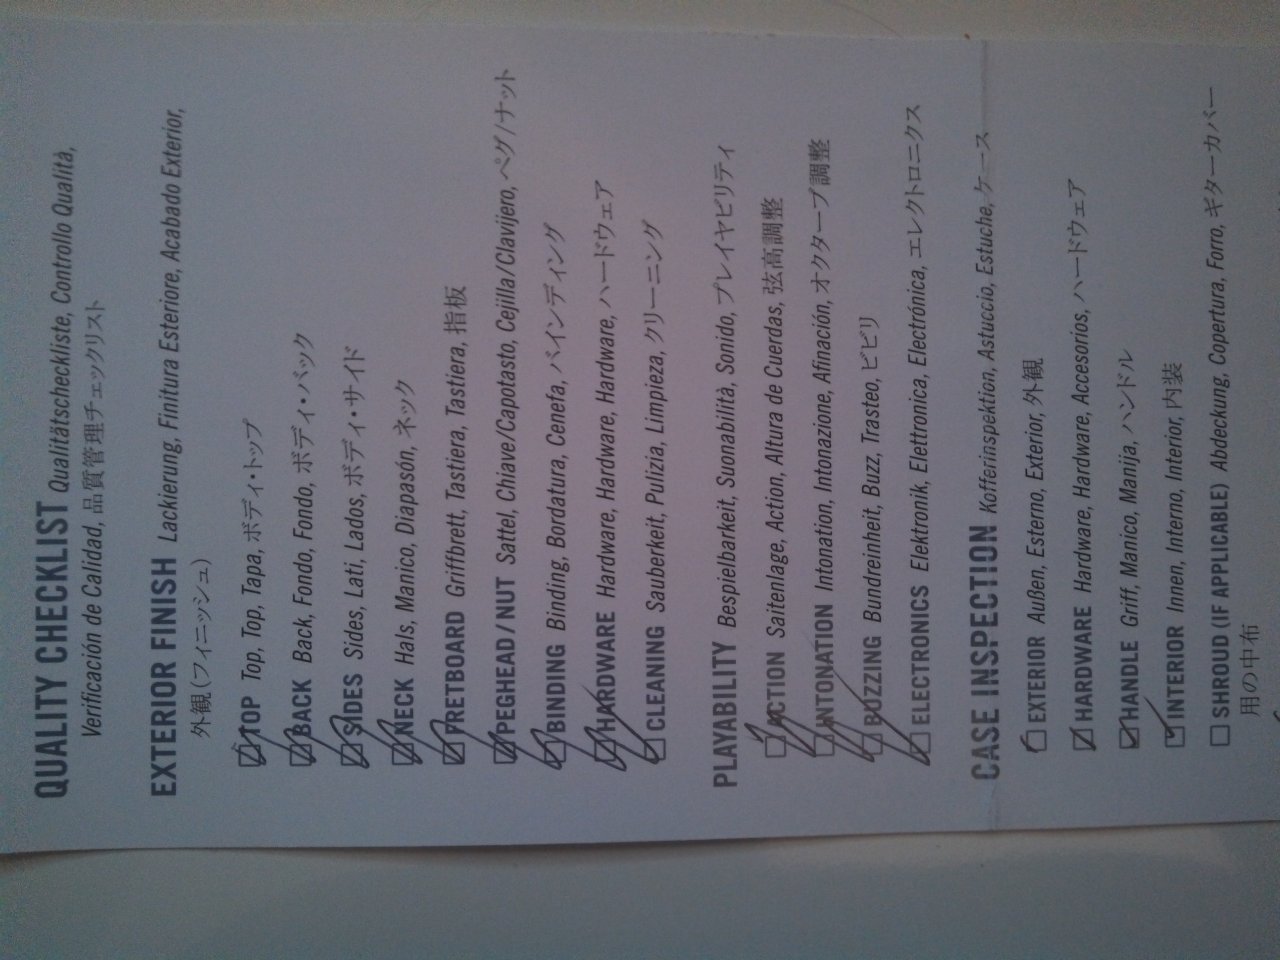 QUALITY CHECKLIST Qualitätscheckliste, Controllo Qualità,
Verificación de Calidad, 品質管理チェックリスト
EXTERIOR FINISH Lackierung, Finitura Esteriore, Acabado Exterior,
外観(フィニッシュ)
TOP Top, Top, Tapa, ボディ・トップ
BACK Back, Fondo, Fondo, ボディ・バック
SIDES Sides, Lati, Lados, ボディ・サイド
NECK Hals, Manico, Diapasón, ネック
FRETBOARD Griffbrett, Tastiera, Tastiera, 指板
PEGHEAD/NUT Sattel, Chiave/Capotasto, Cejilla/Clavijero, ペグ/ナット
BINDING Binding, Bordatura, Ceneta, バインディング
HARDWARE Hardware, Hardware, Hardware, ハードウェア
CLEANING Sauberkeit, Pulizia, Limpieza, クリーニング
PLAYABILITY Bespielbarkeit, Suonabilità, Sonido, プレイヤビリティ
ACTION Saitenlage, Action, Altura de Cuerdas, 弦高調整
INTONATION Intonation, Intonazione, Afinación, オクターブ調整
BUZZING Bundreinheit, Buzz, Trasteo, ビビリ
ELECTRONICS Elektronik, Elettronica, Electrónica, エレクトロニクス
CASE INSPECTION Kofferinspektion, Astuccio, Estuche, ケース
EXTERIOR Außen, Esterno, Exterior, 外観
HARDWARE Hardware, Hardware, Accesorios, ハードウェア
HANDLE Griff, Manico, Manija, ハンドル
INTERIOR Innen, Interno, Interior, 内装
SHROUD (IF APPLICABLE) Abdeckung, Copertura, Forro, ギターカバー
用の中布